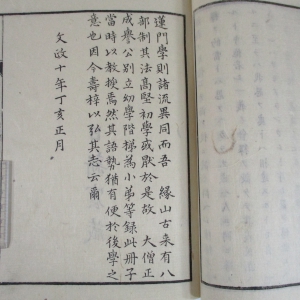 蓮門學則諸流異同而吾　緣山古来有八
部制其法高堅初學或厭於是故　大僧正
成譽公別立幼學階梯為小弟等録此册子
當時以教授焉然其語勢猶有便於後學之
意也因今壽梓以弘其志云爾
文政十年丁亥正月